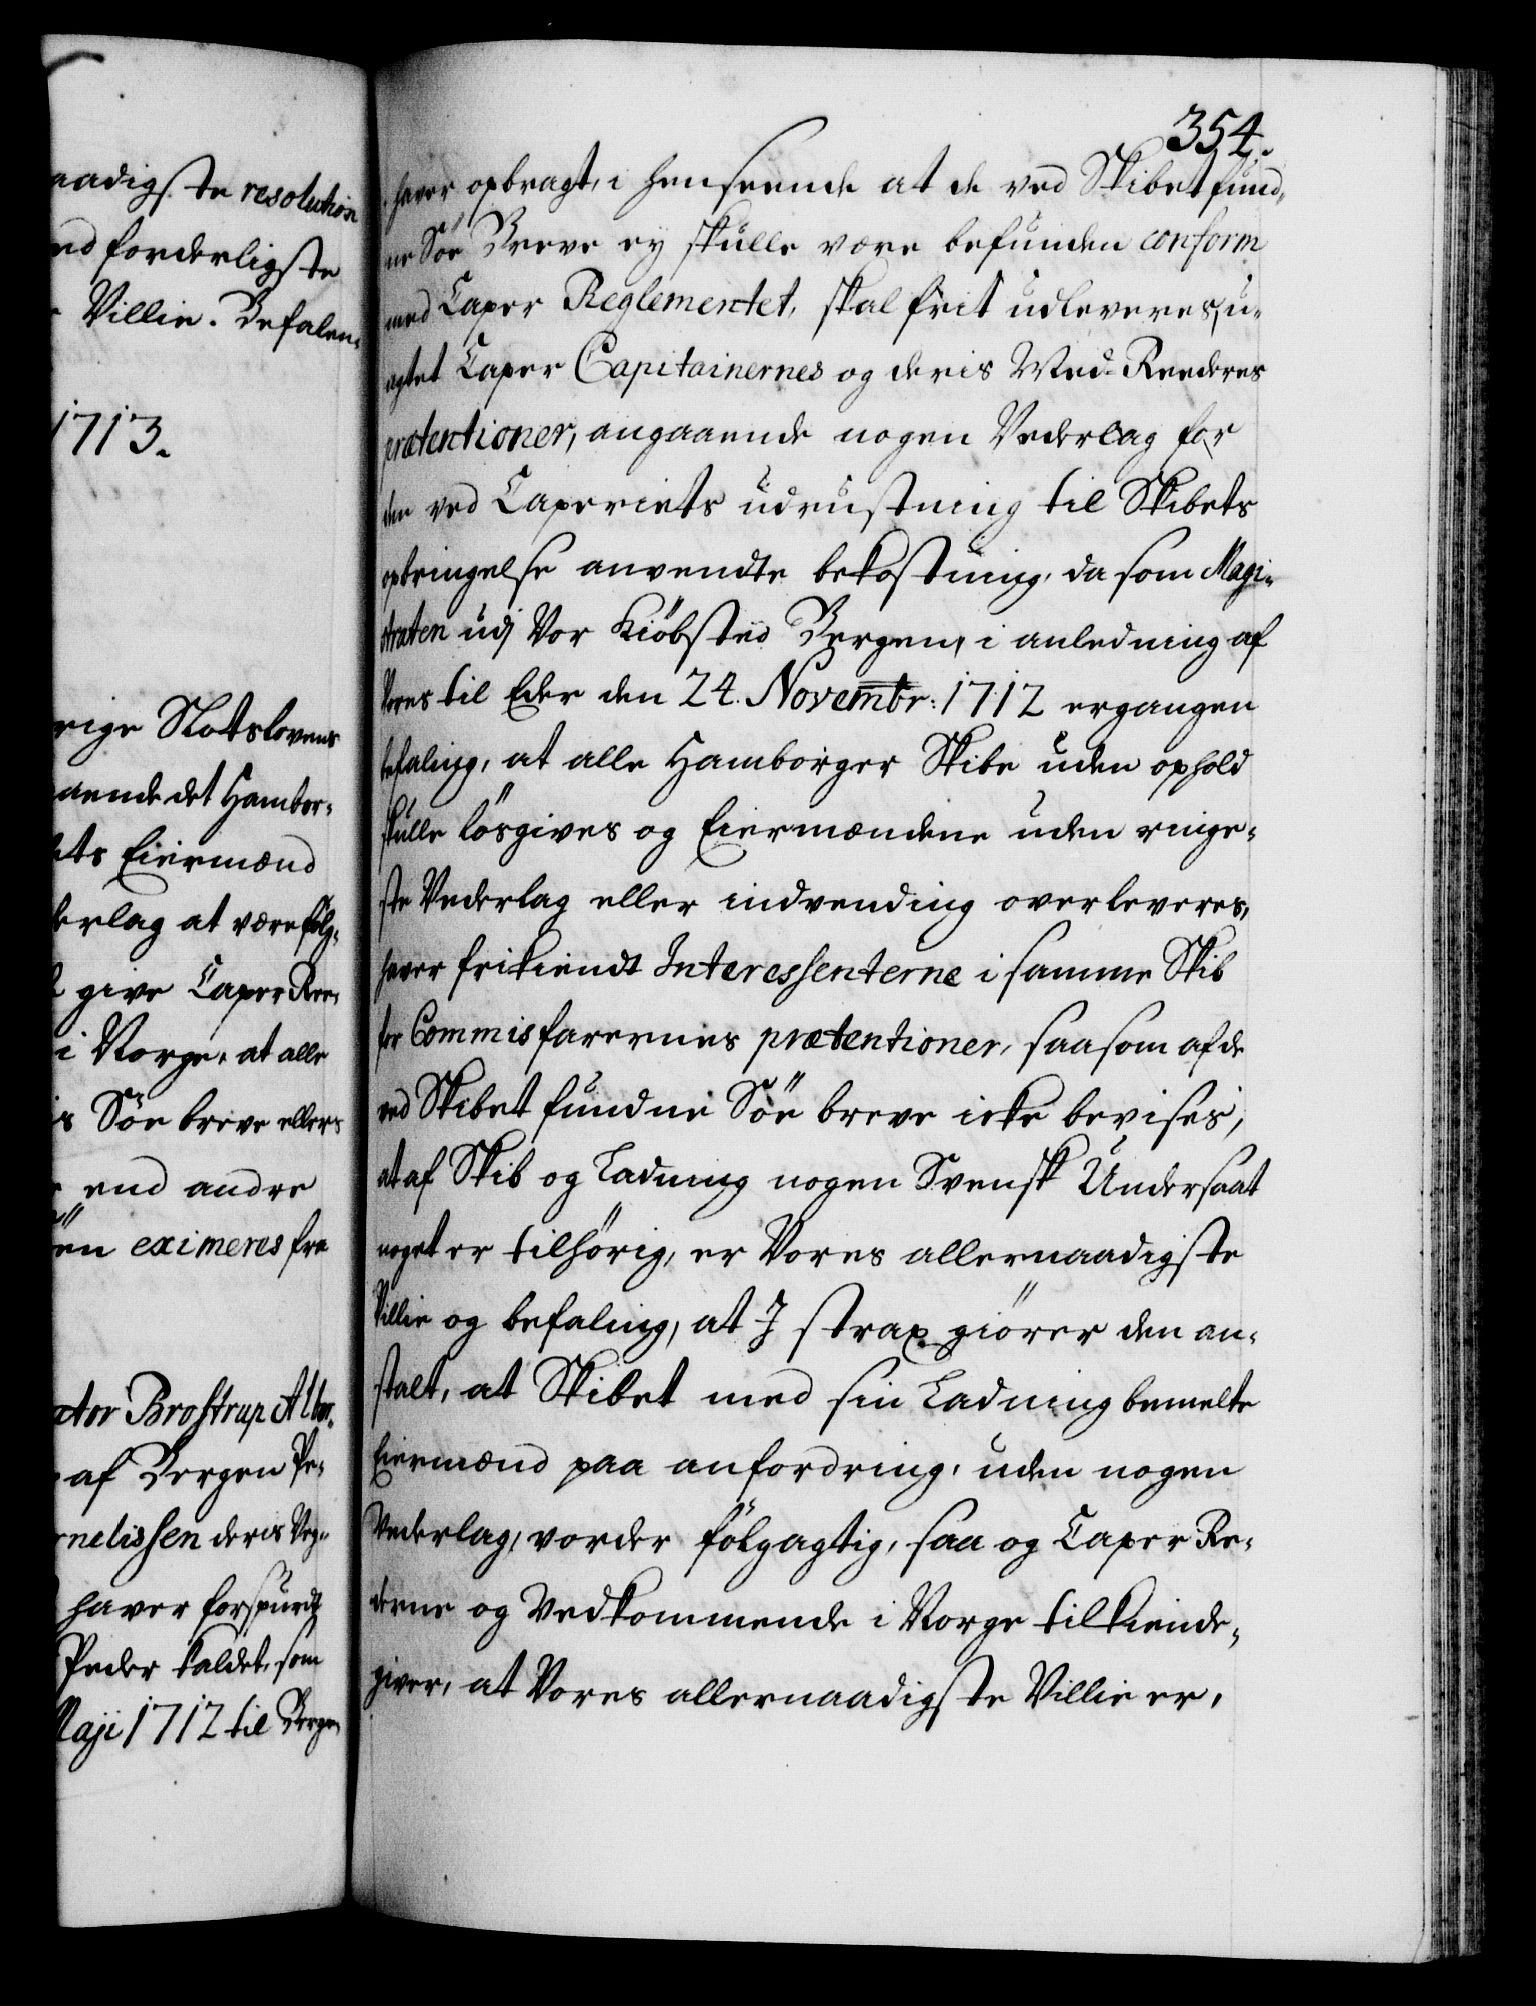 aadigste resolution
ed forderligste
Villie. Befalen-
1713.
rige Slotslovens
aaende det Hambor-
ets Eiermænd
derlag at være følg-
give Caper Ree-
i Norge, at alle
is Søe breve ellers
end andre
eximeres fra
ator Brostrup Alber-
af Bergen Pe-
rnelissen deris Veg-
haver forspurdt
Peder kaldet, som
Maji 1712 til Bergen
354.
haver opbragt, i henseende at de ved Skibet fund-
ne Söe Breve ey skulle være befunden conform
med Caper Reglementet, skal frit udleveres, u-
agtet Caper Capitainernes og deris Med-Reederes
prætentioner, angaaende nogen Vederlag for
den ved Caperiets udrustning til Skibets
opbringelse anvendte bekostning, da som Magi-
straten udj Vor Kiöbsted Bergen, i anledning af
Vores til Eder den 24. Novembr: 1712 ergangen
befaling, at alle Hamborger Skibe uden ophold
skulle lösgives og Eiermændene uden ringe-
ste Vederlag eller indvending overleveres,
haver frikiendt Interessenterne i samme Skib
for Commisfarernes prætentioner, saasom af de
ved Skibet fundne Söe breve icke bevises,
at af Skib og Ladning nogen Svensk Undersaat
noget er tilhörig, er Vores allernaadigste
Villie og befaling, at I strax giörer den an-
stalt, at Skibet med sin Ladning bemelte
Eiermænd paa anfordring, uden nogen
Vederlag, vorder fölgagtig, saa og Caper Re-
derne og Vedkommende i Norge tilkiende-
giver, at Vores allernaadigste Villie er,